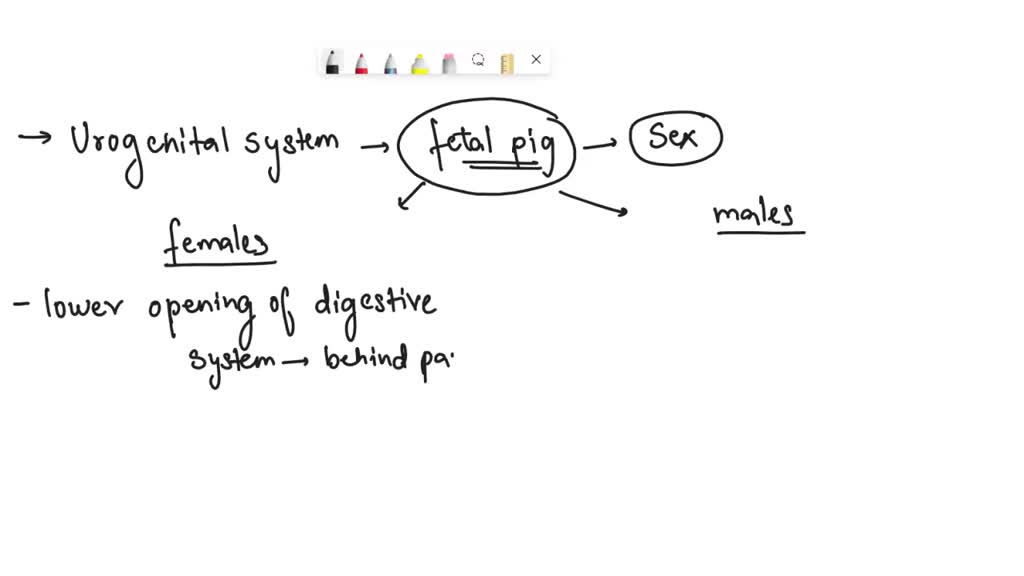 → Urogenital system → fetal pig → Sex
females
males
- lower opening of digestive
system → behind pa